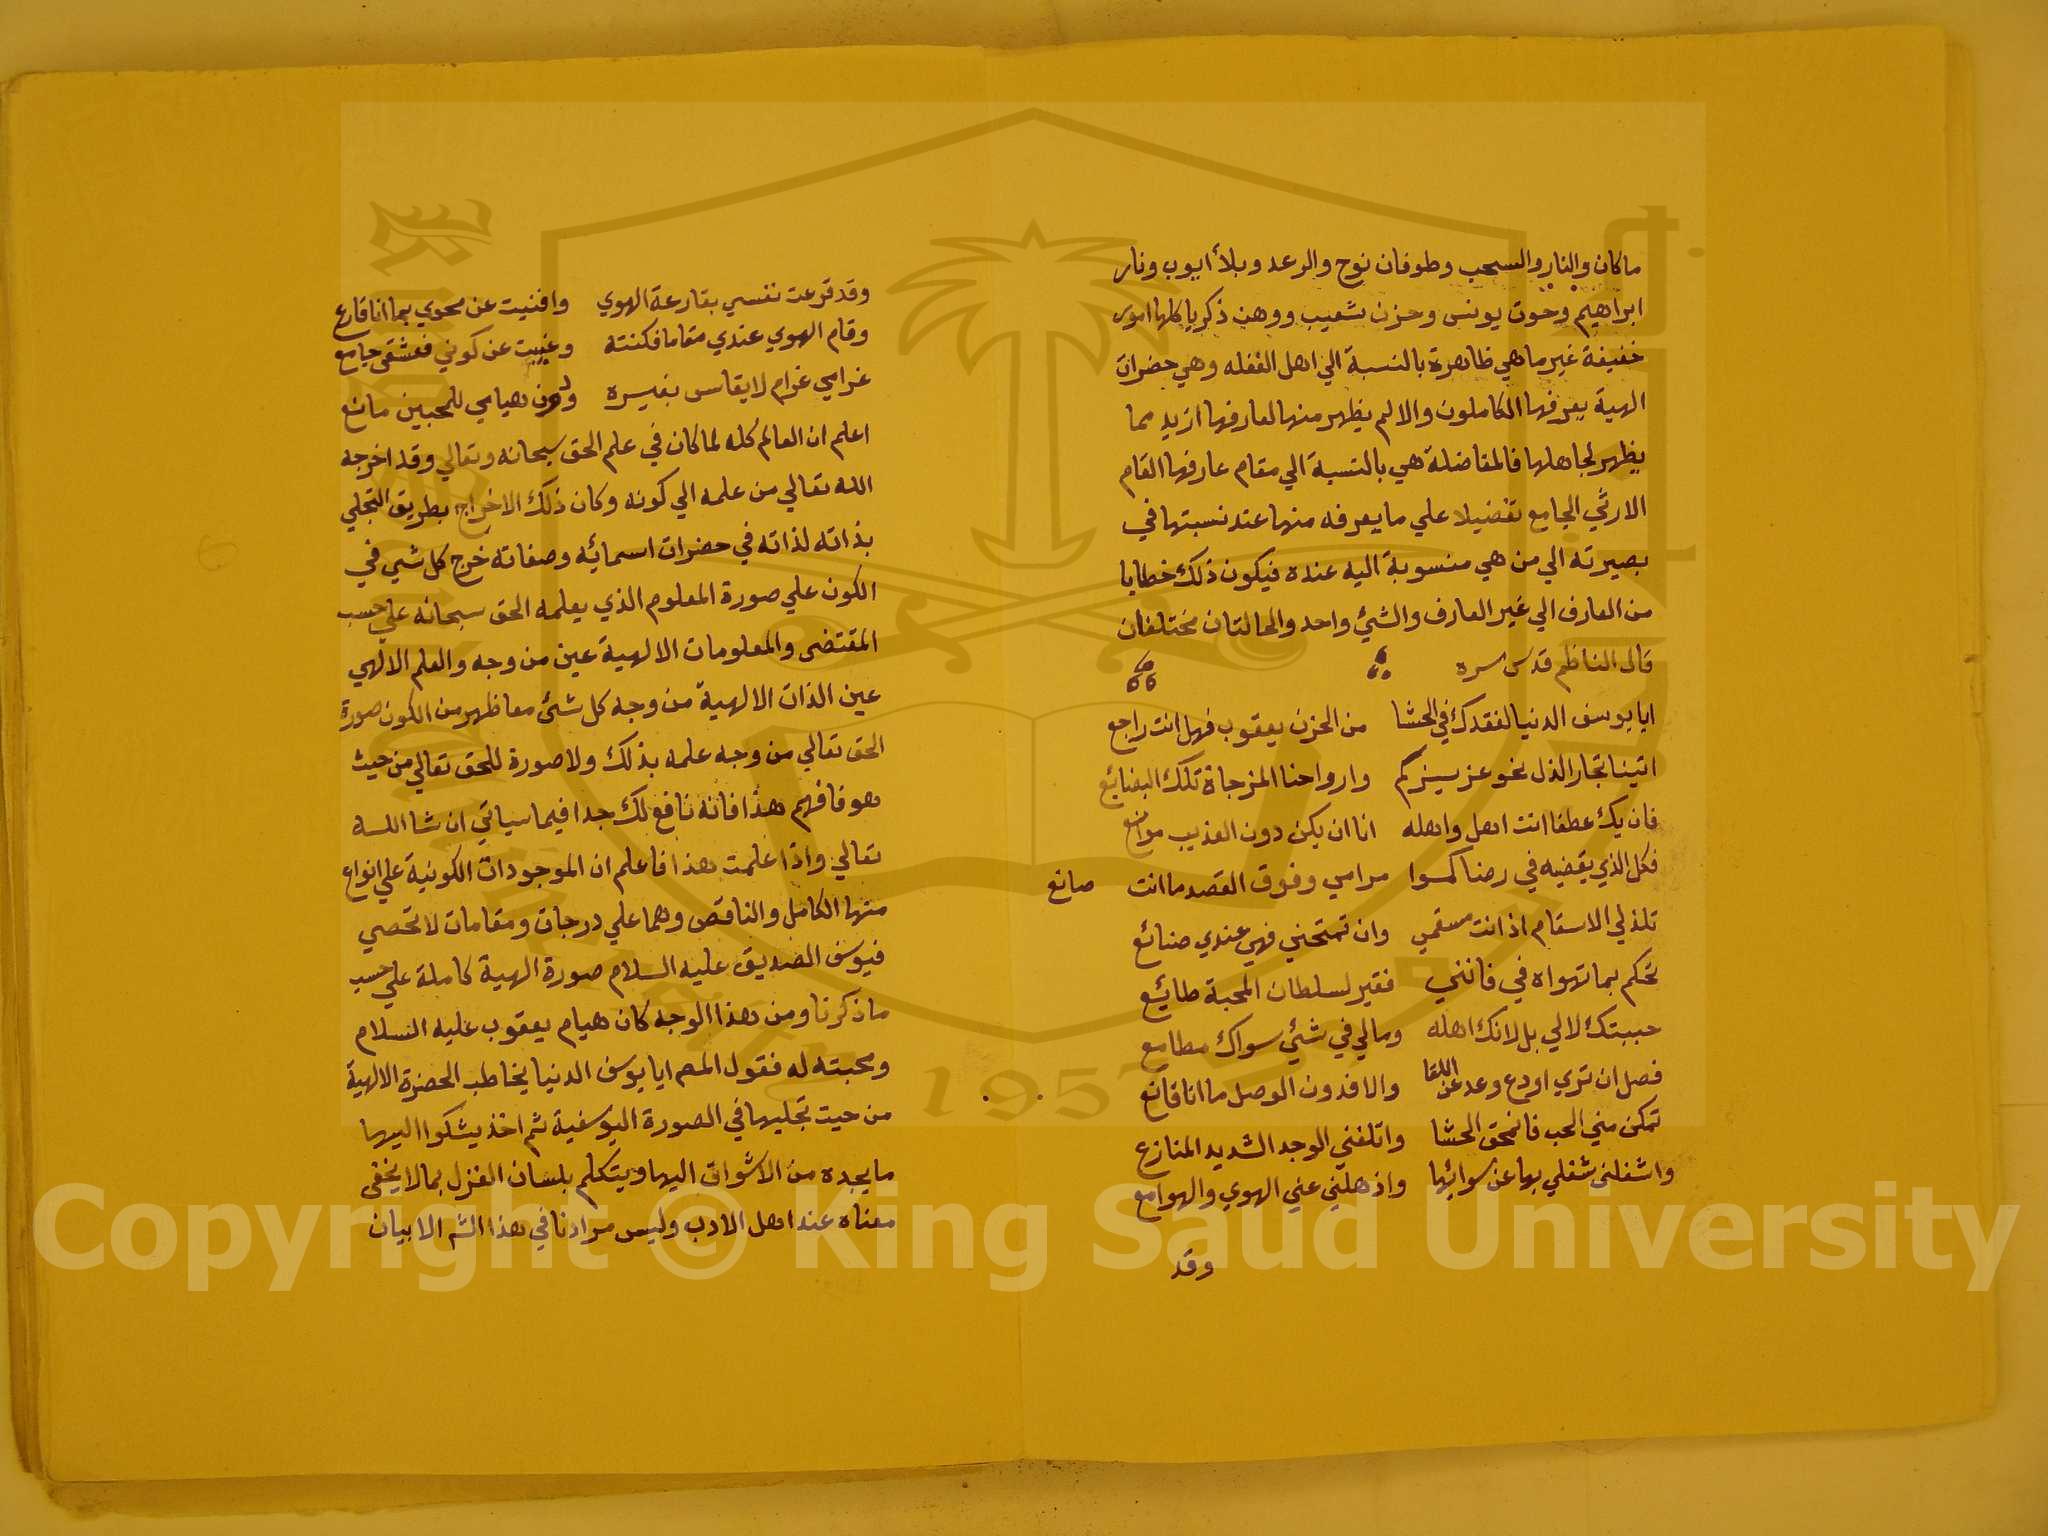 ماكان والنار والسحب وطوفان نوح والرعد وبلأ ايوب ونار
ابراهيم وحوت يونس وحزن شعيب ووهن ذكريا كلها امور
خفيفة غير ماهي ظاهرة بالنسبة الي اهل الغفله وهي حضرات
الهية يعرفها الكاملون والالم يظهر منها لعارفها ازيد مما
يظهر لجاهلها فالمفاضلة هي بالنسبة الي مقام عارفها القام
الارثي الجامع تفضيلا علي ما يعرفه منها عند نسبتها في
بصيرته الي من هي منسوبة اليه عنده فيكون ذلك خطايا
من العارف الي غير العارف والشئ واحد والحالتان مختلفان
قال الناظم قدس سره
ايا يوسف الدنيا لفقدك في الحشا من الحزن يعقوب فهل انت راجع
اتينا تجار الذل نحو عزيزكم وارواحنا المزجاة تلك البضائع
فان يك عطفا انت اهل واهله انا ان يكن دون العذيب موانع
فكل الذي يقضيه في رضاكموا مرامي وفوق القصد ما انت صانع
تلذ لي الاسقام اذ انت مسقمي وان تمتحني فهي عندي صنائع
تحكم بما تهواه في فانني فقير لسلطان المحبة طائع
حببتك لا لي بل لانك اهله ومالي في شئ سواك مطامع
فصل ان تري اودع وعد عن اللقا والا فدون الوصل ما انا قانع
تمكن مني الحب فانمحق الحشا واتلفني الوجد الشديد المنازع
واشغلني شغلي بها عن سوائها واذهلني عني الهوي والهوامع
وقد
وقد قرعت نفسي بقارعة الهوي وافنيت عن محوي بما انا قارع
وقام الهوي عندي مقاما فكنته وغيبت عن كوني فعشقي جامع
غرامي غرام لا يقاس بغيره ودون هيامي للمحبين مانع
اعلم ان العالم كله لما كان في علم الحق سبحانه وتعالي وقد اخرجه
الله تعالي من علمه الي كونه وكان ذلك الاخراج بطريق التجلي
بذاته لذاته في حضرات اسمائه وصفاته خرج كل شي في
الكون علي صورة المعلوم الذي يعلمه الحق سبحانه علي حسب
المقتضي والمعلومات الالهية عين من وجه والعلم الالهي
عين الذات الالهية من وجه كل شئ مما ظهر من الكون صورة
الحق تعالي من وجه علمه بذلك ولا صورة للحق تعالي من حيث
هو فافهم هذا فانه نافع لك جدا فيما سياتي ان شا الله
تعالي واذا علمت هذا فاعلم ان الموجودات الكونية علي انواع
منها الكامل والناقص وهما علي درجات ومقامات لا تحصي
فيوسف الصديق عليه السلام صورة الهية كاملة علي حسب
ما ذكرنا ومن هذا الوجه كان هيام يعقوب عليه السلام
ومحبته له فقول المص ايا يوسف الدنيا يخاطب الحضرة الالهية
من حيث تجليها في الصورة اليوسفية ثم اخذ يشكوا اليها
ما يجده من الاشواق اليها ويتكلم بلسان الغزل بما لا يخفي
معناه عند اهل الادب وليس مرادنا في هذا الابيات
King Saud University
1957
Copyright © King Saud University